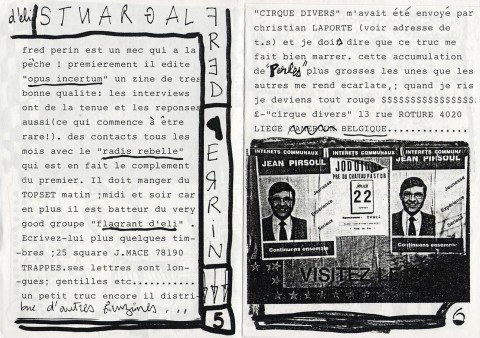 d'eli STUAROAL
FRED PERRIN
fred perin est un mec qui a la
pêche ! premierement il edite
"opus incertum" un zine de tres
bonne qualite: les interviews
ont de la tenue et les reponses
aussi(ce qui commence à être
rare!). des contacts tous les
mois avec le "radis rebelle"
qui est en fait le complement
du premier. Il doit manger du
TOPSET matin ;midi et soir car
en plus il est batteur du very
good groupe "flagrant d'eli" .
Ecrivez-lui plus quelques tim-
bres ;25 square J.MACE 78190
TRAPPES.ses lettres sont lon-
gues; gentilles etc............
un petit truc encore il distri-
bue d'autres fanzines...
5
"CIRQUE DIVERS" m'avait été envoyé par
christian LAPORTE (voir adresse de
t.s) et je dois dire que ce truc me
fait bien marrer. cette accumulation
de "Perles" plus grosses les unes que les
autres me rend ecarlate,; quand je ris
je deviens tout rouge $$$$$$$$$$$$$$$$$:
£-"cirque divers" 13 rue ROTURE 4020
LIEGE CAMEROUN BELGIQUE..............
INTERETS COMMUNAUX
JEAN PIRSOUL
Jeunesse
Expérience
Continuons ensemble
JODOIGNE
PRE DU CHATEAU PASTUR
JEUDI
22
INTERETS COMMUNAUX
JEAN PIRSOUL
Jeunesse
Expérience
Continuons ensemble
VISITEZ
6